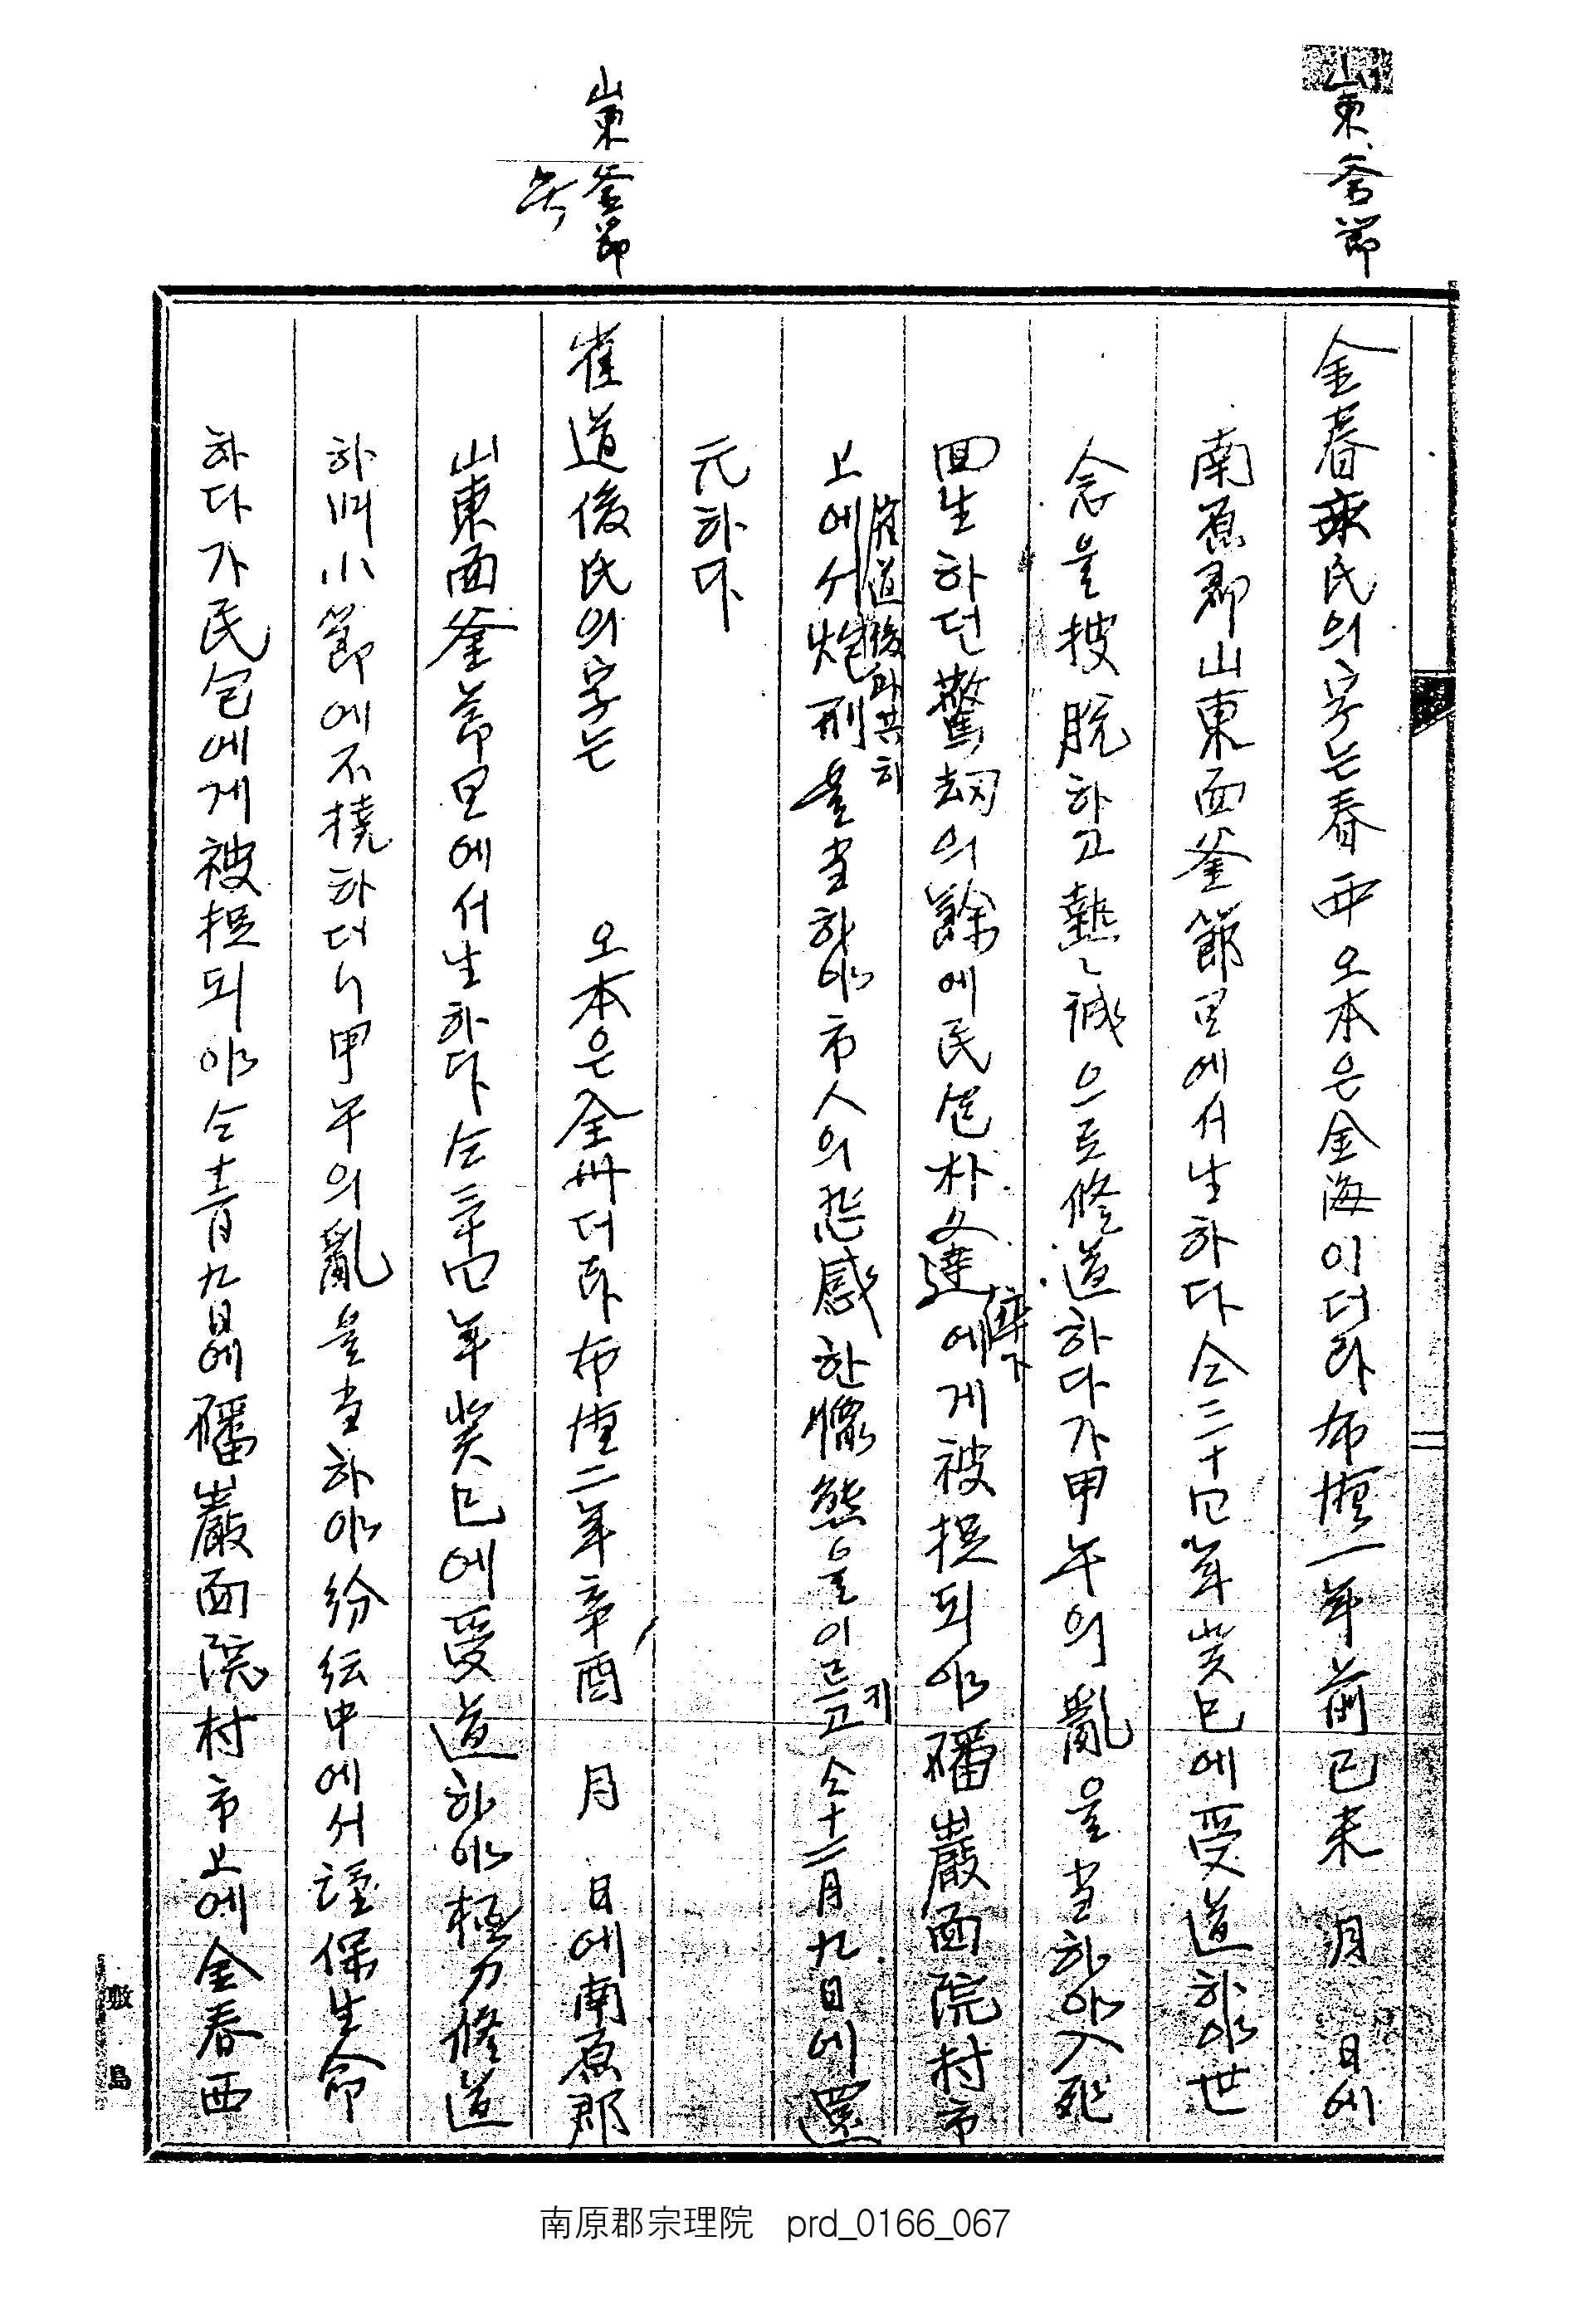 山東釜節
金春 氏의字는春西오本은金海이더라布德一年前己未 月 日에
南原郡山東面釜節里에서生하다仝三十四年癸巳에受道하야世
念을披脫하고熱々誠으로修道하다가甲午의亂을当하야入死
回生하던驚劫의餘에民包朴文達에게被捉되야磻巖面院村市
上에서炮刑을当하야市人의悲感한懷態을이르고仝十二月九日에還
崔道俊과共히
元하다
山東釜節
崔道俊氏의字는 오本은全州더라布德二年辛酉 月 日에南原郡
山東面釜節里에서生하다仝三十四年癸巳에受道하야極力修道
하며小節에不撓하더니甲午의亂을当하야紛紜中에서謹保生命
하다가民包에게被捉되야仝十二月九日에磻巖面院村市上에金春西
南原郡宗理院 prd_0166_067